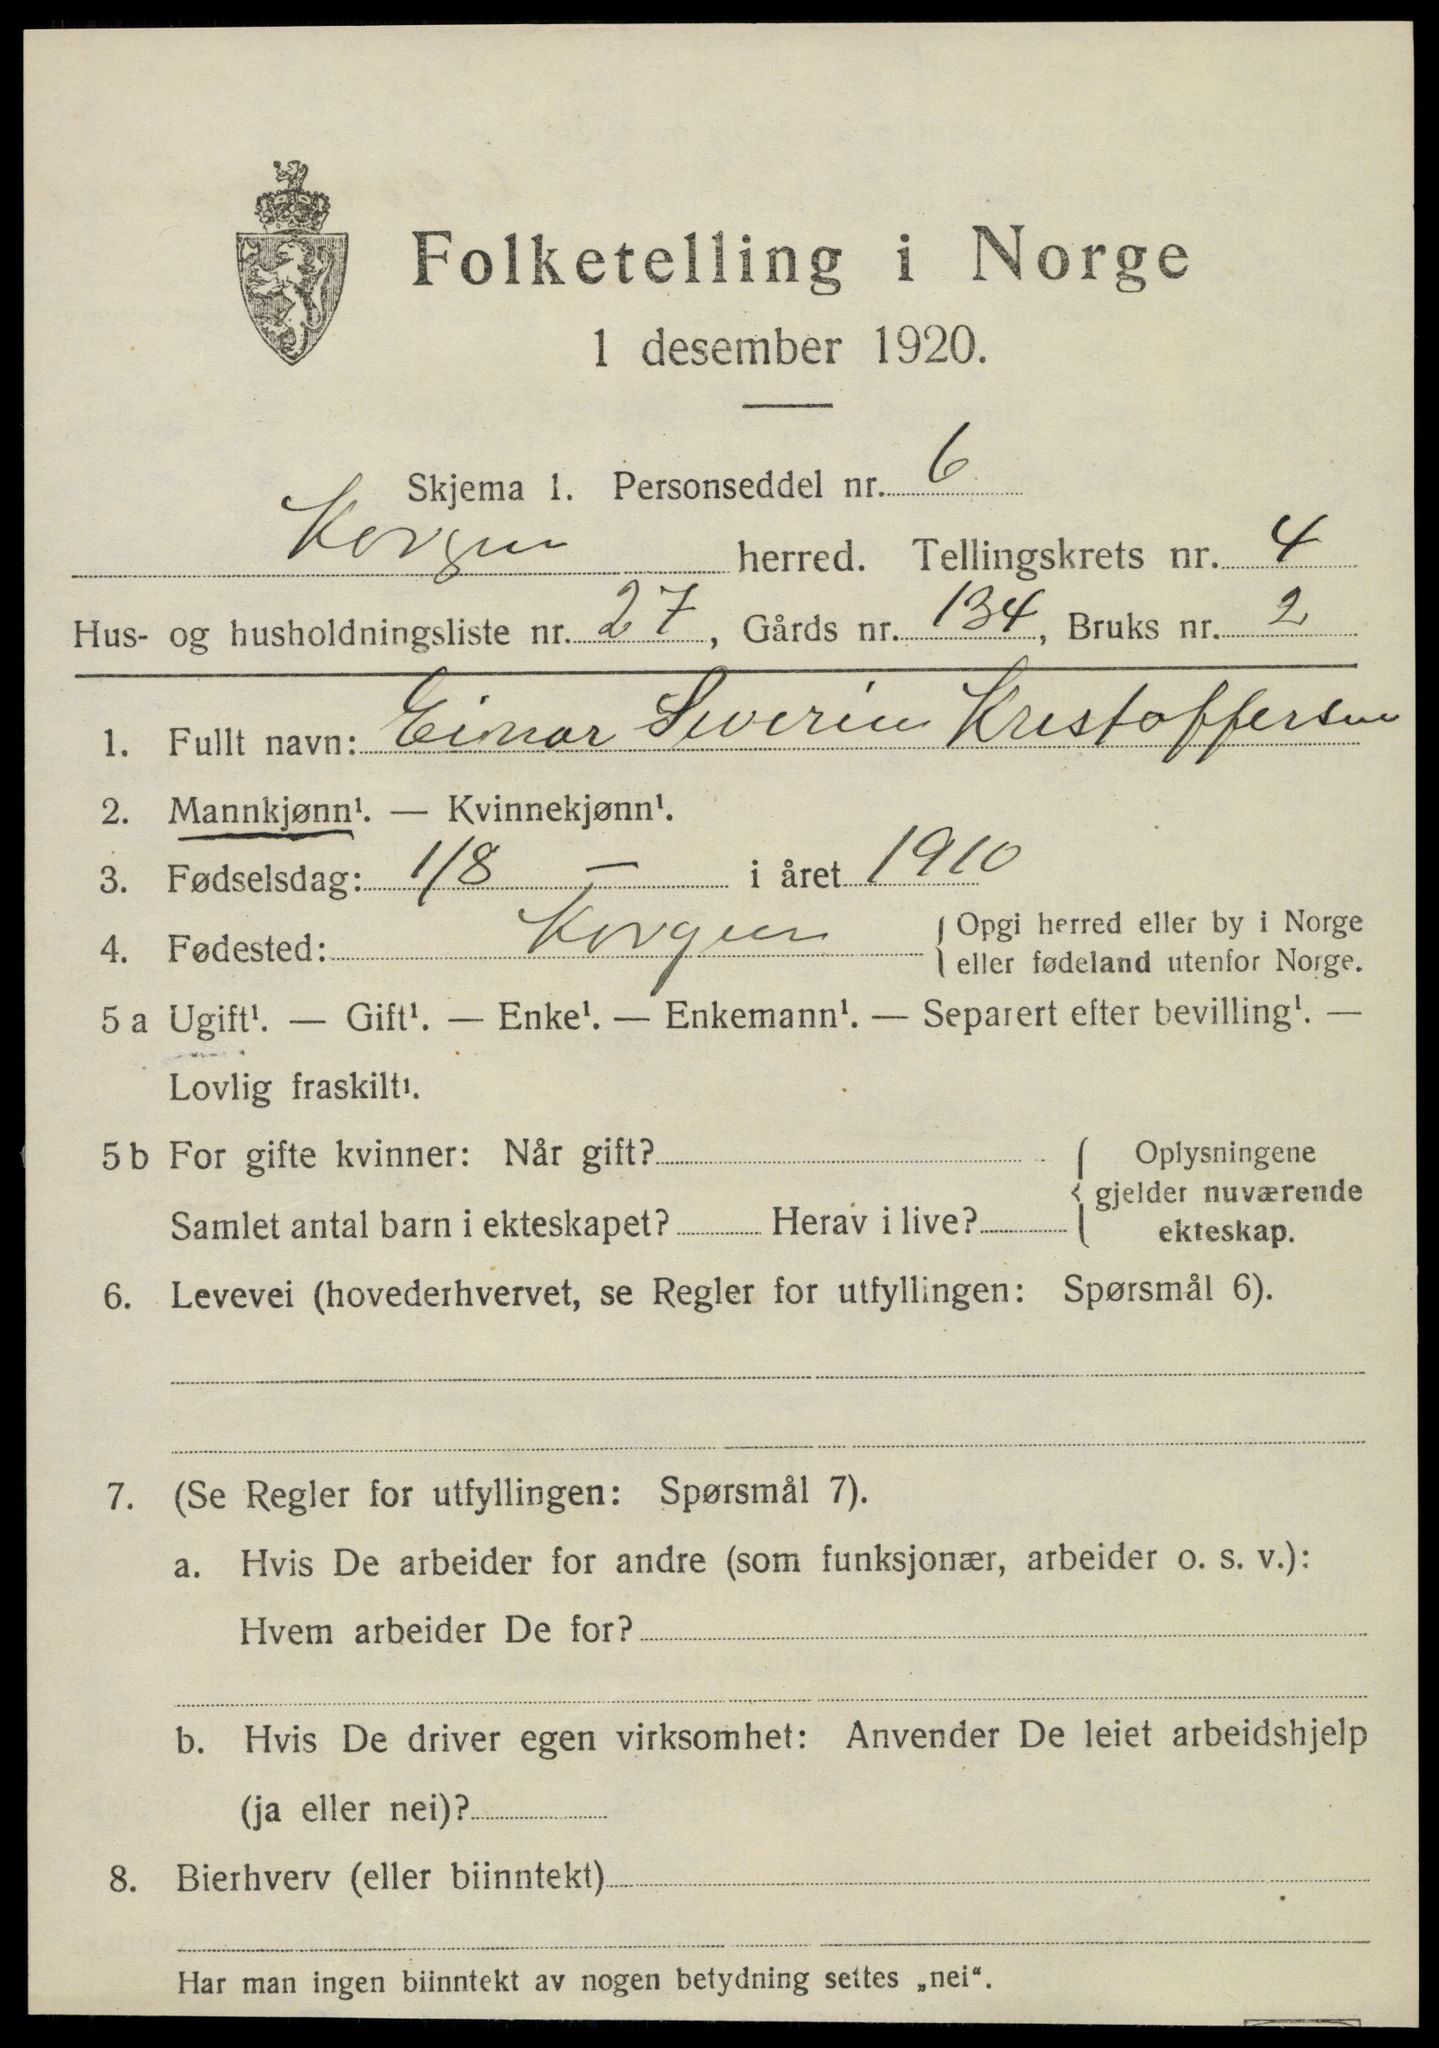 Folketelling i Norge
1 desember 1920.
Skjema 1. Personseddel nr. 6
Korgen herred. Tellingskrets nr. 4
Hus- og husholdningsliste nr. 27, Gårds nr. 134, Bruks nr. 2
1. Fullt navn: Einar Severin Kristoffersen
2. Mannkjønn¹. — Kvinnekjønn¹.
3. Fødselsdag: 1/8 — i året 1910
4. Fødested: Korgen { Opgi herred eller by i Norge
eller fødeland utenfor Norge.
5 a Ugift¹. — Gift¹. — Enke¹. — Enkemann¹. — Separert efter bevilling¹. —
Lovlig fraskilt¹.
5 b For gifte kvinner: Når gift? { Oplysningene
gjelder nuværende
Samlet antal barn i ekteskapet? Herav i live? ekteskap.
6. Levevei (hovederhvervet, se Regler for utfyllingen: Spørsmål 6).
7. (Se Regler for utfyllingen: Spørsmål 7).
a. Hvis De arbeider for andre (som funksjonær, arbeider o. s. v.):
Hvem arbeider De for?
b. Hvis De driver egen virksomhet: Anvender De leiet arbeidshjelp
(ja eller nei)?
8. Bierhverv (eller biinntekt)
Har man ingen biinntekt av nogen betydning settes „nei“.